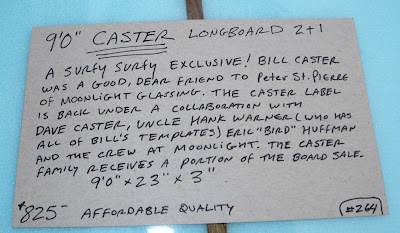 9'0" CASTER LONGBOARD 2+1
A SURFY SURFY EXCLUSIVE! BILL CASTER
WAS A GOOD, DEAR FRIEND TO Peter St. Pierre
OF MOONLIGHT GLASSING. THE CASTER LABEL
IS BACK UNDER A COLLABORATION WITH
DAVE CASTER, UNCLE HANK WARNER (WHO HAS
ALL OF BILL'S TEMPLATES) ERIC "BIRD" HUFFMAN
AND THE CREW AT MOONLIGHT. THE CASTER
FAMILY RECEIVES A PORTION OF THE BOARD SALE.
9'0" x 23" x 3"
$825- AFFORDABLE QUALITY #264